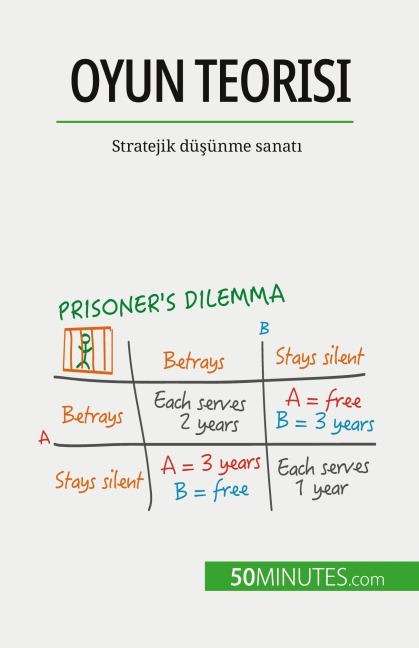 OYUN TEORISI
Stratejik düşünme sanatı
PRISONER'S DILEMMA
B
Betrays
Stays silent
A
Betrays
Each serves
2 years
A = free
B = 3 years
Stays silent
A = 3 years
B = free
Each serves
1 year
50MINUTES.com